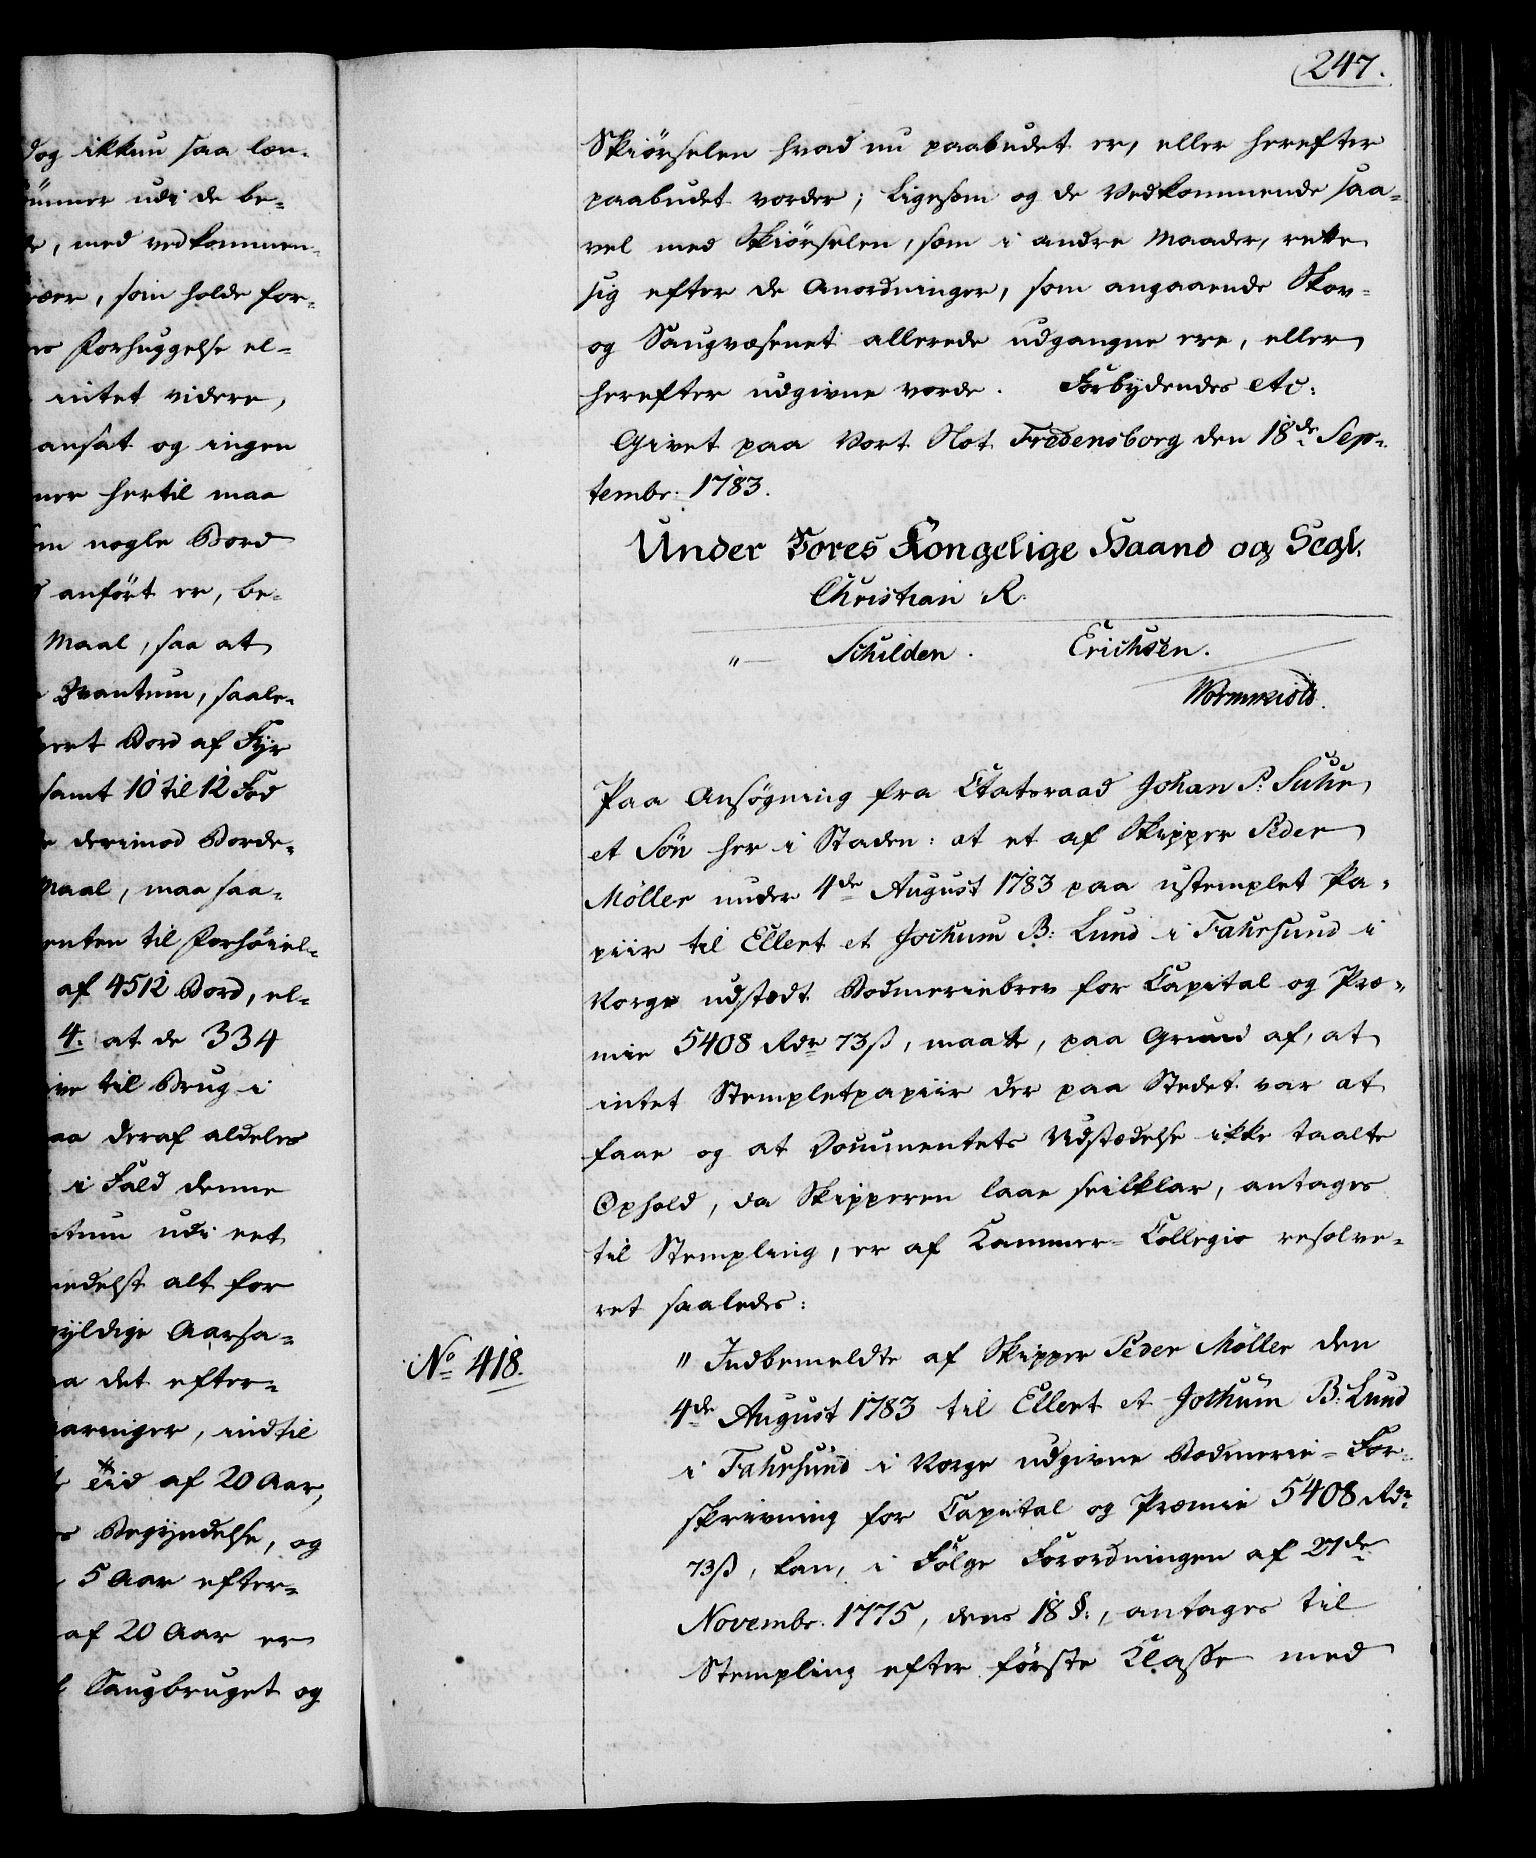 dog ikkun saa læn-
ümmer udi de be-
de, med vedkommen-
æer, som holde for-
es Forhuggelse el-
intet videre,
ansat og ingen
ner hertil maa
om nogle Bord
anført er, be-
Maal, saa at
Qvantum, saale-
vert Bord af Fyr
samt 10 til 12 Fod
derimod Borde-
maal, maa saa-
enten til Forhöiel-
af 4512 Bord, el-
4. at de 334
ive til Brug i
aa deraf aldeles
i Fald denne
ntum udi eet
medelst alt for
gyldige Aarsa-
a det efter-
varniger, indtil
Tiid af 20 Aar,
s Begyndelse, og
5 Aar efter-
af 20 Aar er
Saugbruget og
247.
Skiörselen hvad nu paabudet er, eller herefter
paabudet vorder; Ligesom og de Vedkommende saa-
vel med Skiörselen, som i andre Maader, rette
sig efter de Anordninger, som angaaende Skov-
og Saugvæsenet allerede udgangne ere, eller
herefter udgivne vorde. Forbydendes etc:
Givet paa Vort Slot Fredensborg den 18de Sep-
tembr: 1783.
Under Vores Kongelige Haand og Segl.
Christian R.
" Schilden. Erichsen.
Wormskiold.
Paa Ansøgning fra Etatsraad Johan P: Suhr
et Søn her i Staden: at et af Skipper Peder
Möller under 4de August 1783 paa ustemplet Pa-
piir til Ellert et Jochum B: Lund i Fahrsund i
Norge udstædt Bodmeriebrev for Capital og Præ-
mie 5408 Rdr 73 ß, maatte, paa Grund af, at
intet Stempletpapiir der paa Stedet var at
faae og at Documentets Udstædelse ikke taalte
Ophold, da Skipperen laae seilklar, antages
til Stempling, er af Kammer-Collegio resolve-
ret saaledes:
No 418.
" Indbemeldte af Skipper Peder Möller den
4de August 1783 til Ellert et Jochum B: Lund
i Fahrsund i Norge udgivne Bodmerie-For-
skrivning for Capital og Præmie 5408 Rdr
73 ß, kan, i Fölge Forordningen af 27de
Novembr. 1775, dens 18 §:, antages til
Stempling efter förste Classe med